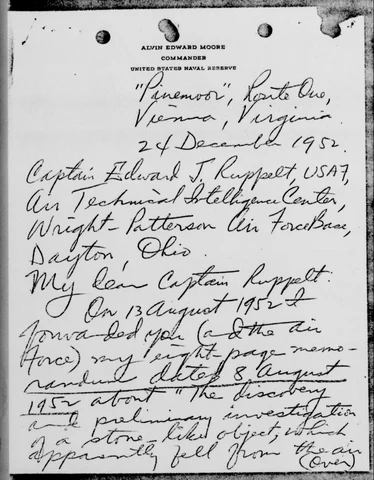 ALVIN EDWARD MOORE
COMMANDER
UNITED STATES NAVAL RESERVE
"Pinemoor", Route One,
Vienna, Virginia.
24 December 1952.
Captain Edward J. Ruppelt, USAF,
Air Technical Intelligence Center,
Wright-Patterson Air Force Base,
Dayton, Ohio.
My dear Captain Ruppelt:
On 13 August 1952 I
forwarded you (and the air
force) my eight-page memo-
randum dated 8 August
1952 about "The discovery
and preliminary investigation
of a stone-like object, which
apparently fell from the air
(Over)